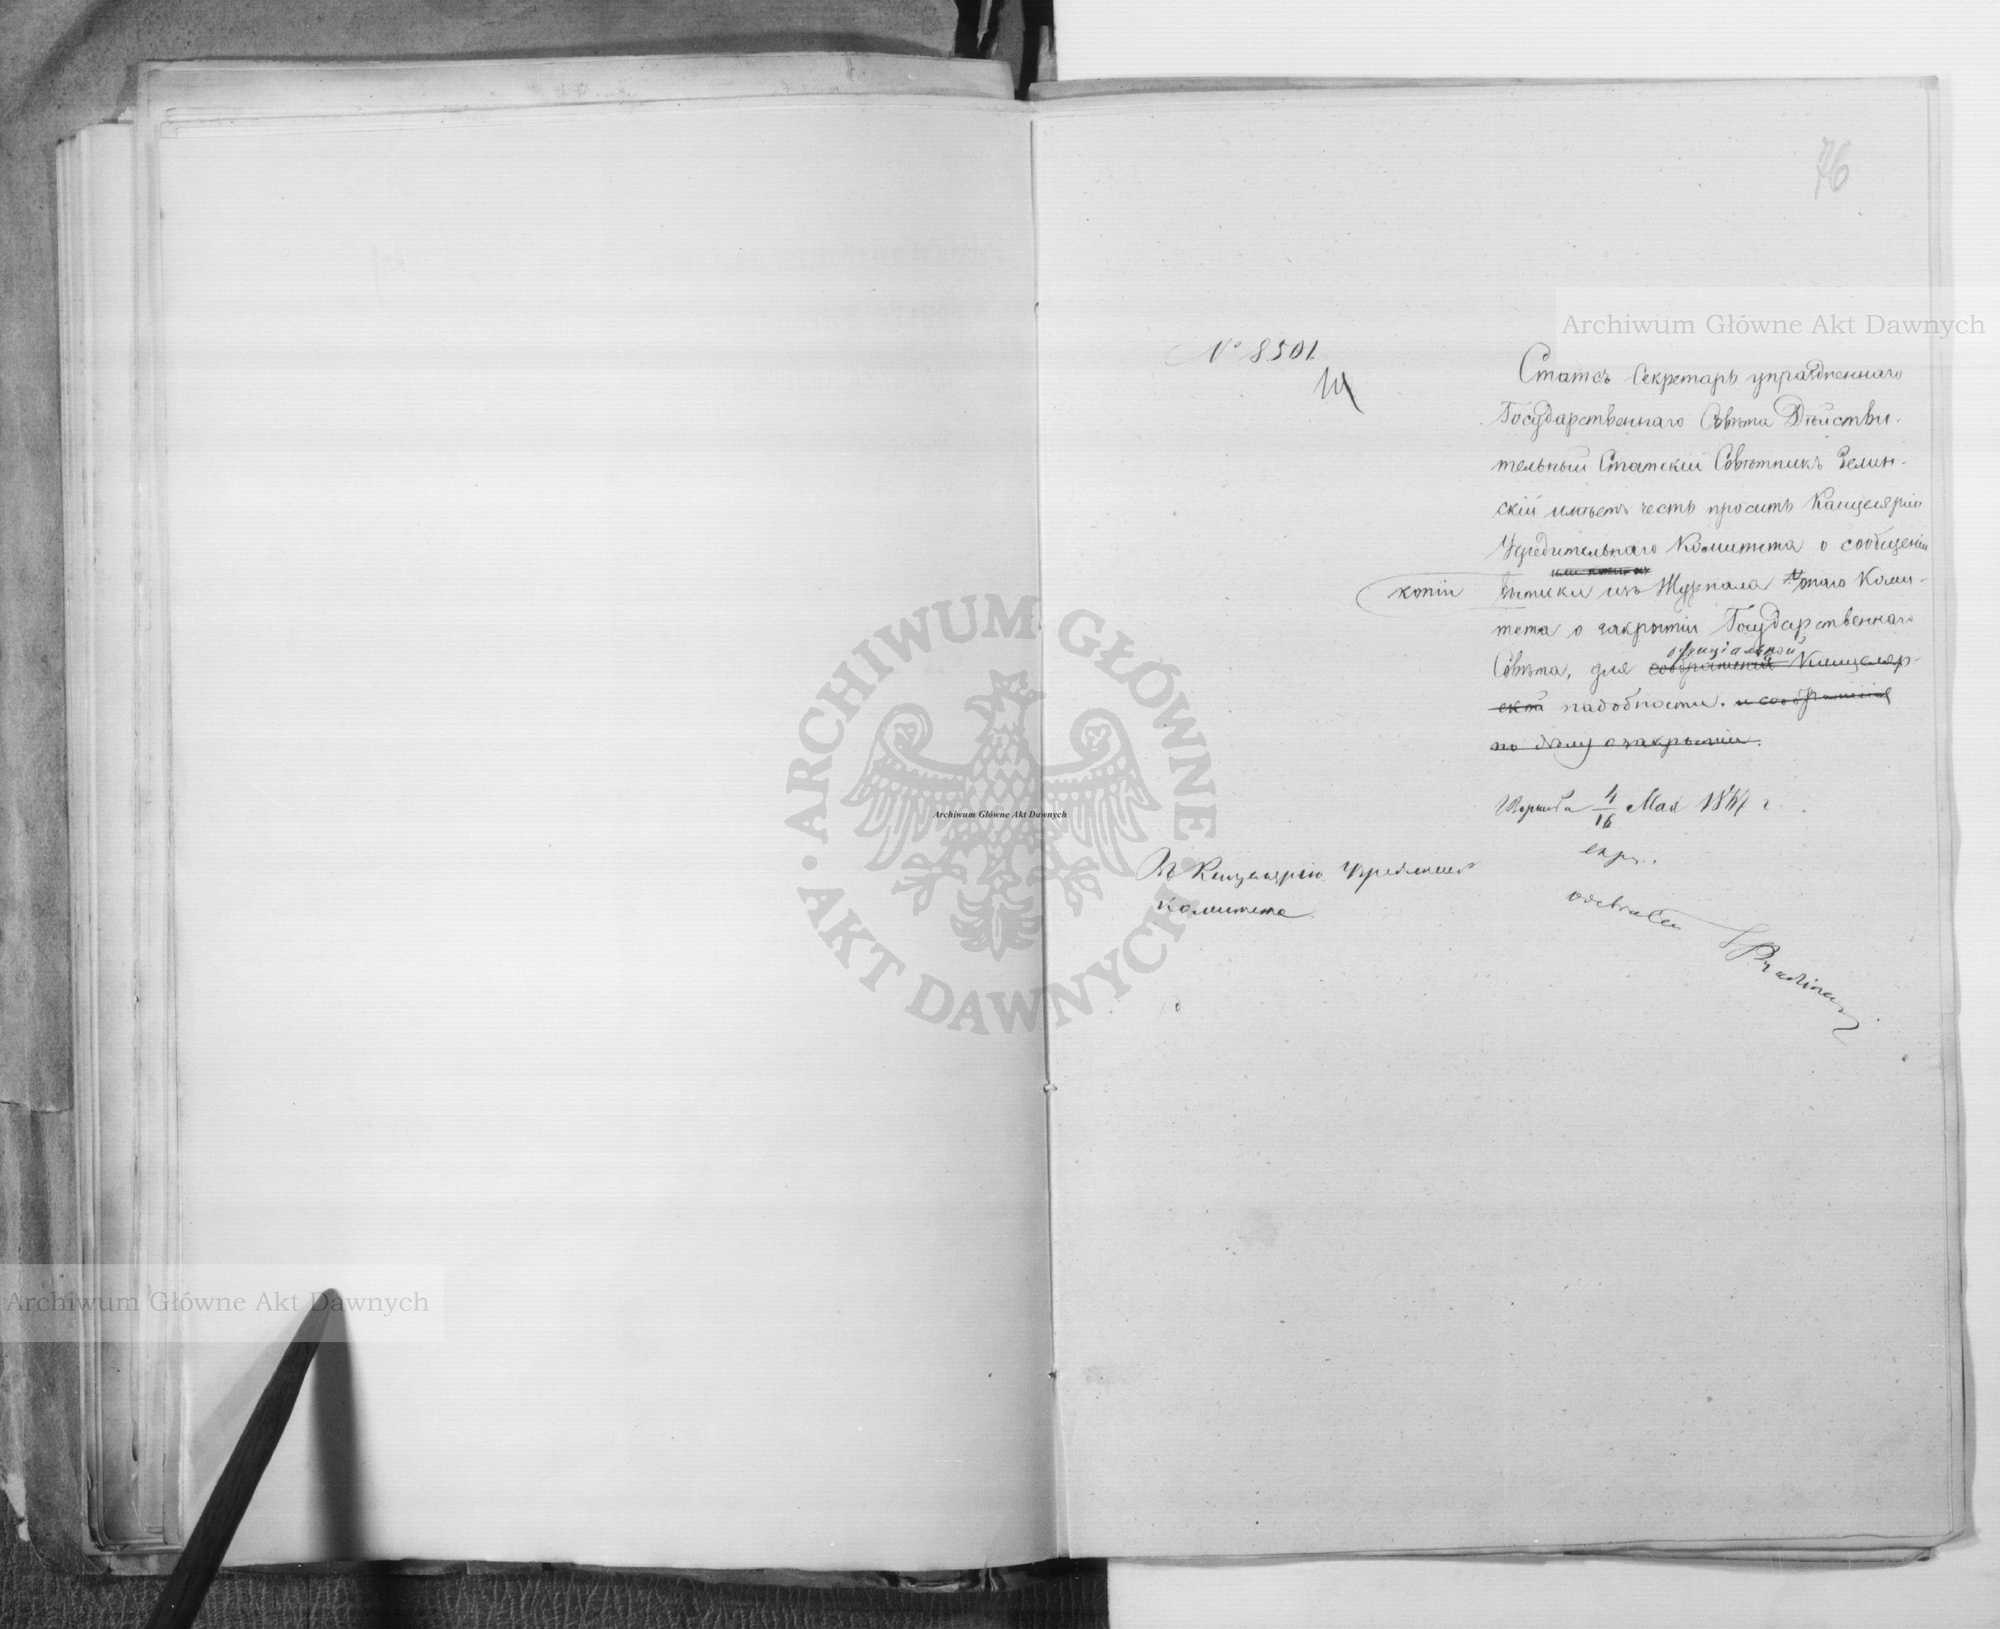 76
Archiwum Główne Akt Dawnych
№ 8501.
Статсъ Секретарь упраздненнаго
Государственнаго Совѣта Дѣйстви-
тельный Статскій Совѣтникъ Зелин-
скій имѣетъ честь просить Канцелярію
Учредительнаго Комитета о сообщеніи
или копіи изъ
копіи
выписки изъ Журнала онаго Коми-
тета о закрытіи Государственнаго
оффиціальной
Совѣта, для соображенія Канцеляр-
ской надобности. и соображенія
по дѣлу о закрытіи.
Варшава 4/16 Мая 1867 г.
Въ Канцелярію Учредительн.
Комитета.
ARCHIWUM GŁÓWNE • AKT DAWNYCH •
Archiwum Główne Akt Dawnych
Archiwum Główne Akt Dawnych